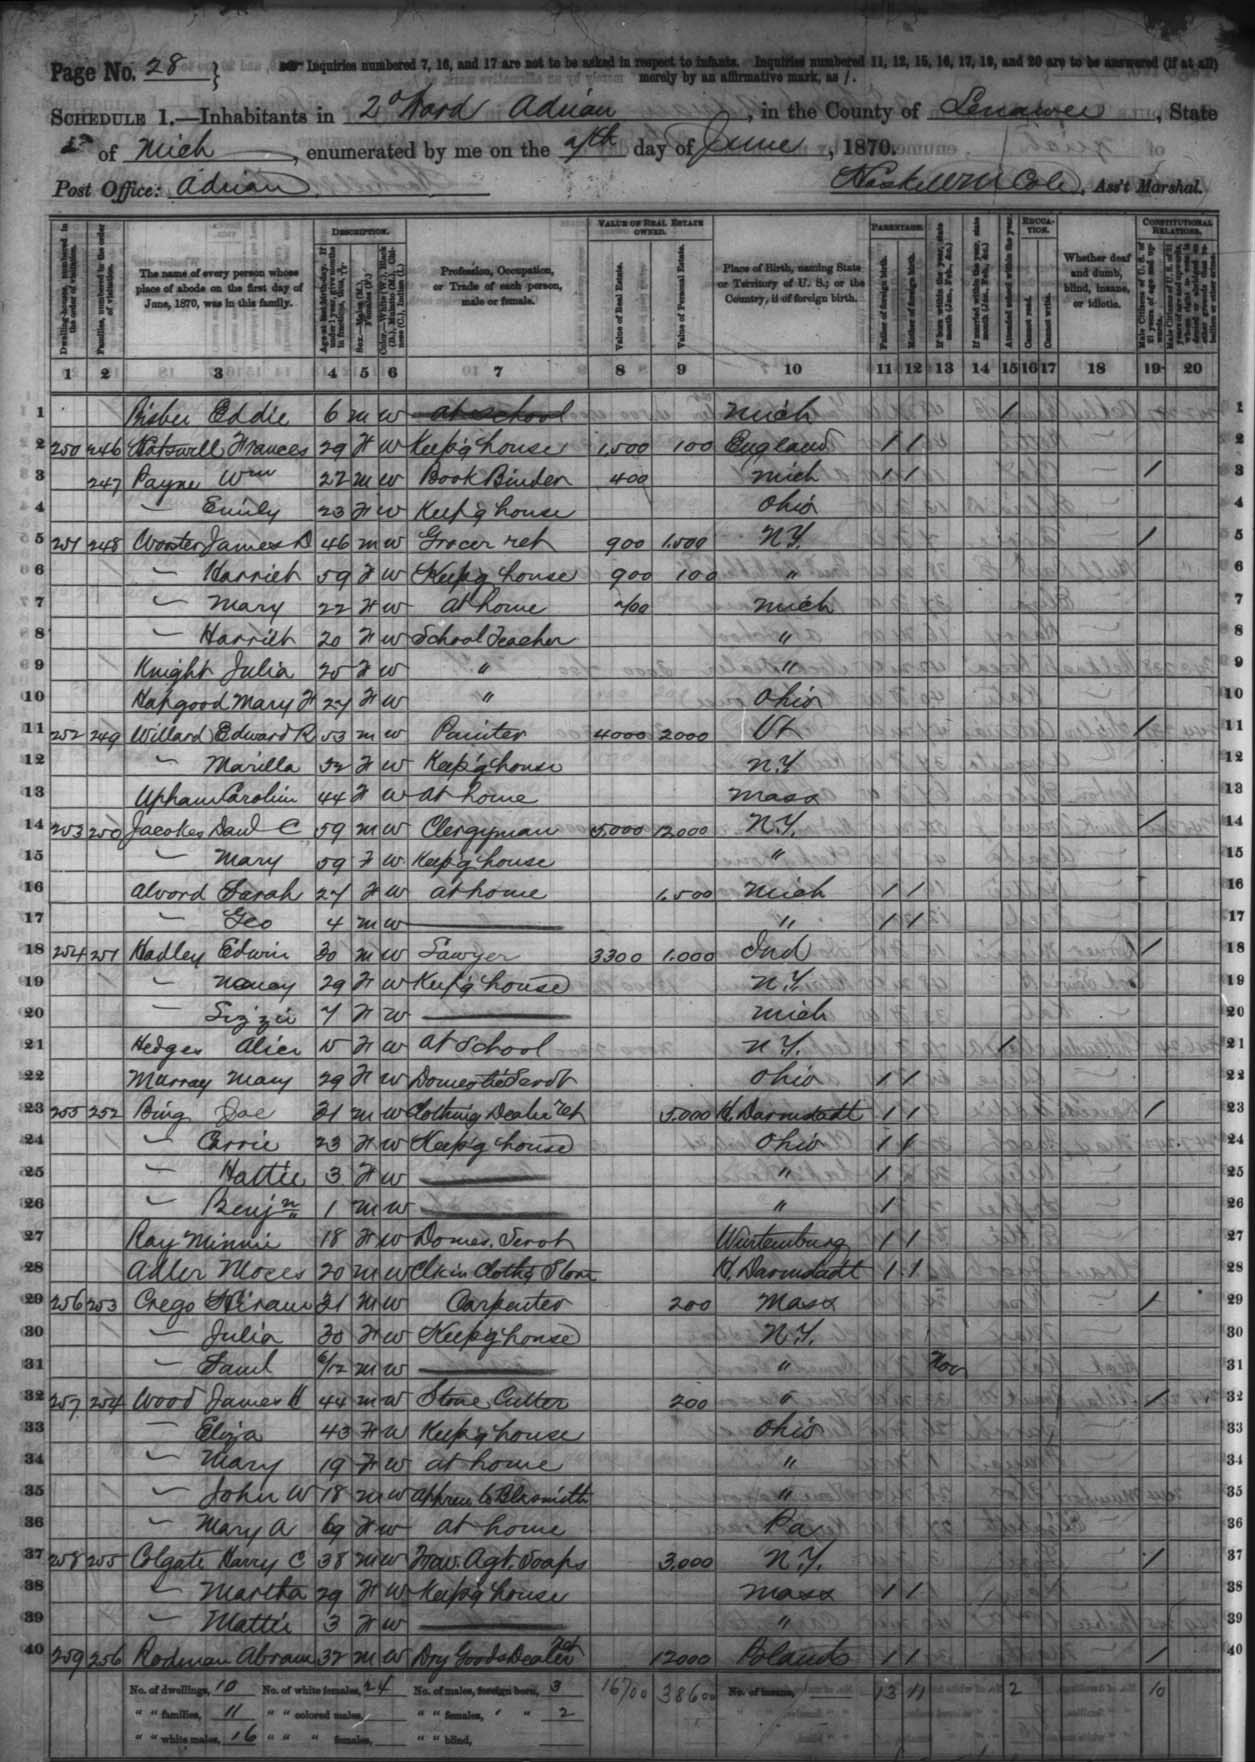 Page No. 28 } Inquiries numbered 7, 16, and 17 are not to be asked in respect to infants. Inquiries numbered 11, 12, 15, 16, 17, 19, and 20 are to be answered (if at all)
merely by an affirmative mark, as /.
SCHEDULE 1.—Inhabitants in 2d Ward Adrian, in the County of Lenawee, State
of Mich, enumerated by me on the 7th day of June, 1870.
Post Office: Adrian Ass't Marshal.
DESCRIPTION. VALUE OF REAL ESTATE OWNED. PARENTAGE. EDUCATION. CONSTITUTIONAL RELATIONS.
Dwelling-houses, numbered in the order of visitation.
Families, numbered in the order of visitation.
The name of every person whose place of abode on the first day of June, 1870, was in this family.
Sex.—Males (M.), Females (F.)
Profession, Occupation, or Trade of each person, male or female.
Value of Real Estate.
Value of Personal Estate.
Place of Birth, naming State or Territory of U. S.; or the Country, if of foreign birth.
Father of foreign birth.
Mother of foreign birth.
If born within the year, state month (Jan., Feb., &c.)
If married within the year, state month (Jan., Feb., &c.)
Attended school within the year.
Cannot read.
Cannot write.
Whether deaf and dumb, blind, insane, or idiotic.
1 2 3 4 5 6 7 8 9 10 11 12 13 14 15 16 17 18 19 20
1 Eddie 6 M W at School Mich / 1
2 250 246 Frances 29 F W Keep'g house 1,500 100 England / / 2
3 247 Payne Wm 27 M W Book Binder 400 Mich / / / 3
4 — Emily 23 F W Keep'g house Ohio 4
5 251 248 Wooster James D 46 M W Grocer ret 900 1,500 N.Y. / 5
6 — Harriet 59 F W Keep'g house 900 100 " 6
7 — Mary 22 F W at home 700 Mich 7
8 — Harriet 20 F W School Teacher " 8
9 Knight Julia 25 F W " " 9
10 Hapgood Mary F 27 F W " Ohio 10
11 252 249 Willard Edward R 53 M W Painter 4000 2000 Vt / 11
12 — Marilla 52 F W Keep'g house N.Y 12
13 Upham Carolin 44 F W at home Mass 13
14 253 250 Jacokes Danl C 59 M W Clergyman 5,000 12000 N.Y. / 14
15 — Mary 59 F W Keep'g house " 15
16 Alvord Sarah 27 F W at home 1,500 Mich / / 16
17 — Geo 4 M W " / / 17
18 254 251 Hadley Edwin 30 M W Sawyer 3300 1,000 Ind / 18
19 — Nancy 29 F W Keep'g house N.Y. 19
20 — Lizzie 7 F W Mich 20
21 Hedges Alice 15 F W at School N.Y. / 21
22 Murray Mary 29 F W Domestic Servt Ohio / / 22
23 255 252 Bing Joe 31 M W Clothing Dealer ret 5,000 H. Darmdadt / / / 23
24 — Carrie 23 F W Keep'g house Ohio / / 24
25 — Hattie 3 F W " / 25
26 — Benjn 1 M W " / 26
27 Ray Minnie 18 F W Domes. Servt Wurtemburg / / 27
28 Adler Moses 20 M W Clk in Cloth'g Store H. Darmdadt / / 28
29 256 253 Crego Hiram 31 M W Carpenter 200 Mass / 29
30 — Julia 30 F W Keep'g house N.Y. 30
31 — Saml 6/12 M W " Nov 31
32 257 254 Wood James H 44 M W Stone Cutter 200 " / 32
33 — Eliza 43 F W Keep'g house Ohio 33
34 — Mary 19 F W at home " 34
35 — John W 18 M W Appren to Blksmith " 35
36 — Mary A 69 F W at home Pa 36
37 258 255 Colgate Harry C 38 M W Trav. Agt. Soaps 3,000 N.Y. / 37
38 — Martha 29 F W Keep'g house Mass / / 38
39 — Mattie 3 F W " 39
40 259 256 Rodman Abram 32 M W Dry Goods Dealer ret 12000 Poland / / / 40
No. of dwellings, 10 No. of white females, 24 No. of males, foreign born, 3 16700 38600 No. of insane, 13 11 2 10
" " families, 11 " " colored males, " " females, " " 2
" " white males, 16 " " " females, " " blind,